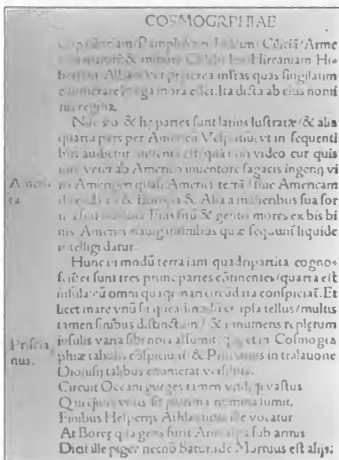 COSMOGRPHIAE
Capadociam/Pamphiliam Lidiam/Ciliciã/Arme
& minorē Hircaniam Hi
beriam Albaniã et preterea mĩtas quas singulatim
enumerare longa mora esset. Ita dicta ab eius nomi
nis regina.
Nũc & he partes sunt latius lustratæ/& alia
quarta pars per Americũ Vesputiũ vt in sequenti
bus audietur inuenta est quã non video cur quis
iure vetet ab Americo inuentore sagacis ingenij vi
Ameri
ro Amerigen quasi Americi terrã/siue Americam
ca
dicendã cũ & Europa & Asia a mulieribus sua sor
Eius sitũ & gentis mores ex bis bi
nis Americi nauigationibus quæ sequunt liquide
intelligi datur.
Hunc in modũ terra iam quadripartita cognos
scit et sunt tres prime partes cõtinentes/quarta est
insula cũ omni quaq̃ mari circũdata conspiciat̃. Et
licet mare vnũ sit ipsa tellus/multis
tamen sinibus distinctum/& innumeris repletum
Priscia
insulis varia sibi noĩa assumit in Cosmogra
nus.
phiæ tabulis cõspiciunt̃ & Priscianus in tralatione
Dionisij talibus enumerat versibus.
Circuit Oceani gurges tamen vndiq̃ vastus
Qui q̃uis vnus sit plurima nomina sumit.
Finibus Hesperijs Athlanticus ille vocatur
At Boreę qua gens furit Arimaspa sub armis
Dicit̃ ille piger necnõ Satur. idẽ Mortuus est alijs;